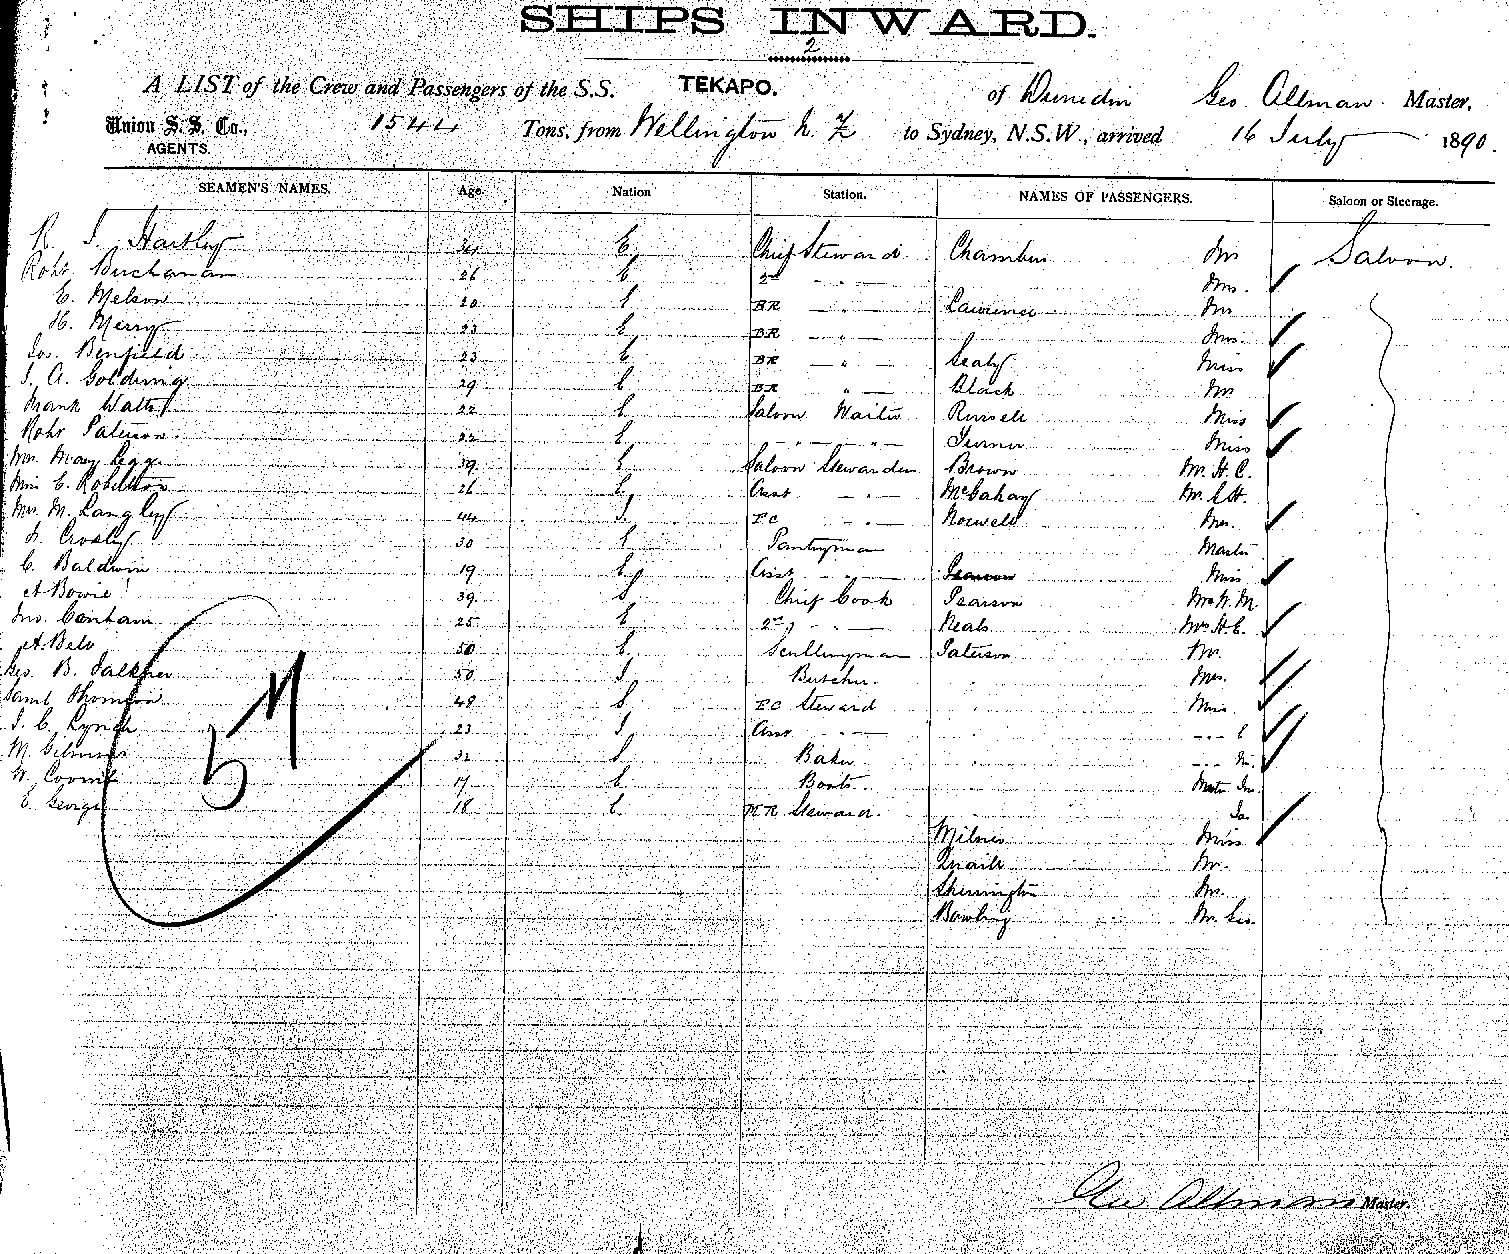 SHIPS INWARD.
2
A LIST of the Crew and Passengers of the S.S. TEKAPO. of Dunedin Geo. Allman Master,
Union S. S. Co., AGENTS. 1544 Tons, from Wellington N. Z to Sydney, N.S.W., arrived 16 July 1890.
SEAMEN'S NAMES. Age Nation Station. NAMES OF PASSENGERS. Saloon or Steerage.
Hartley E Chief Steward Chambers Mr Saloon.
Robt Buchanan 26 E 2nd - " - Mrs.
E. Melson 20 E BR - " - Lawrence Mr
H. Merry 23 E BR - " - Mrs.
Jos. Benfield 23 E BR - " - Sealy Miss
J. A. Golding 29 E BR " - Black Mr
Frank Watts 22 E Saloon Waiter Russell Miss
Robt Paterson. 22 E - " - " - Turner Miss
Mrs. Mary Legge 39 E Saloon Stewardess Brown Mr. H. C.
Miss C. Robertson 26 E Asst - " - McGahey Mr.
Mrs. M. Langley 44 I. FC - " - Norwell Mrs.
Crosby 30 E Pantryman Master
C. Baldwin 19 E Asst - " - Miss
A Bowie 39 S Chief Cook Pearson Mr W. M.
Jno. Canham 25 E 2nd " - Neals Mrs H. C.
A Belo 50 E Sculleryman Paterson Mr.
Geo. B. Falkner 50 I Butcher. Mrs.
Saml Thomson 48 S FC Steward Miss
J. C. Lynch 23 I Asst " - - - - E
M. Gilmour 32 S Baker - - - M.
W. Coombe 17 E Boots. Master Jno.
E. George 18 E MR Steward. Jas
Milnes Miss
Quaile Mr.
Sherrington Mr.
Bowling Mr. Geo.
5 M
Geo Allman Master.